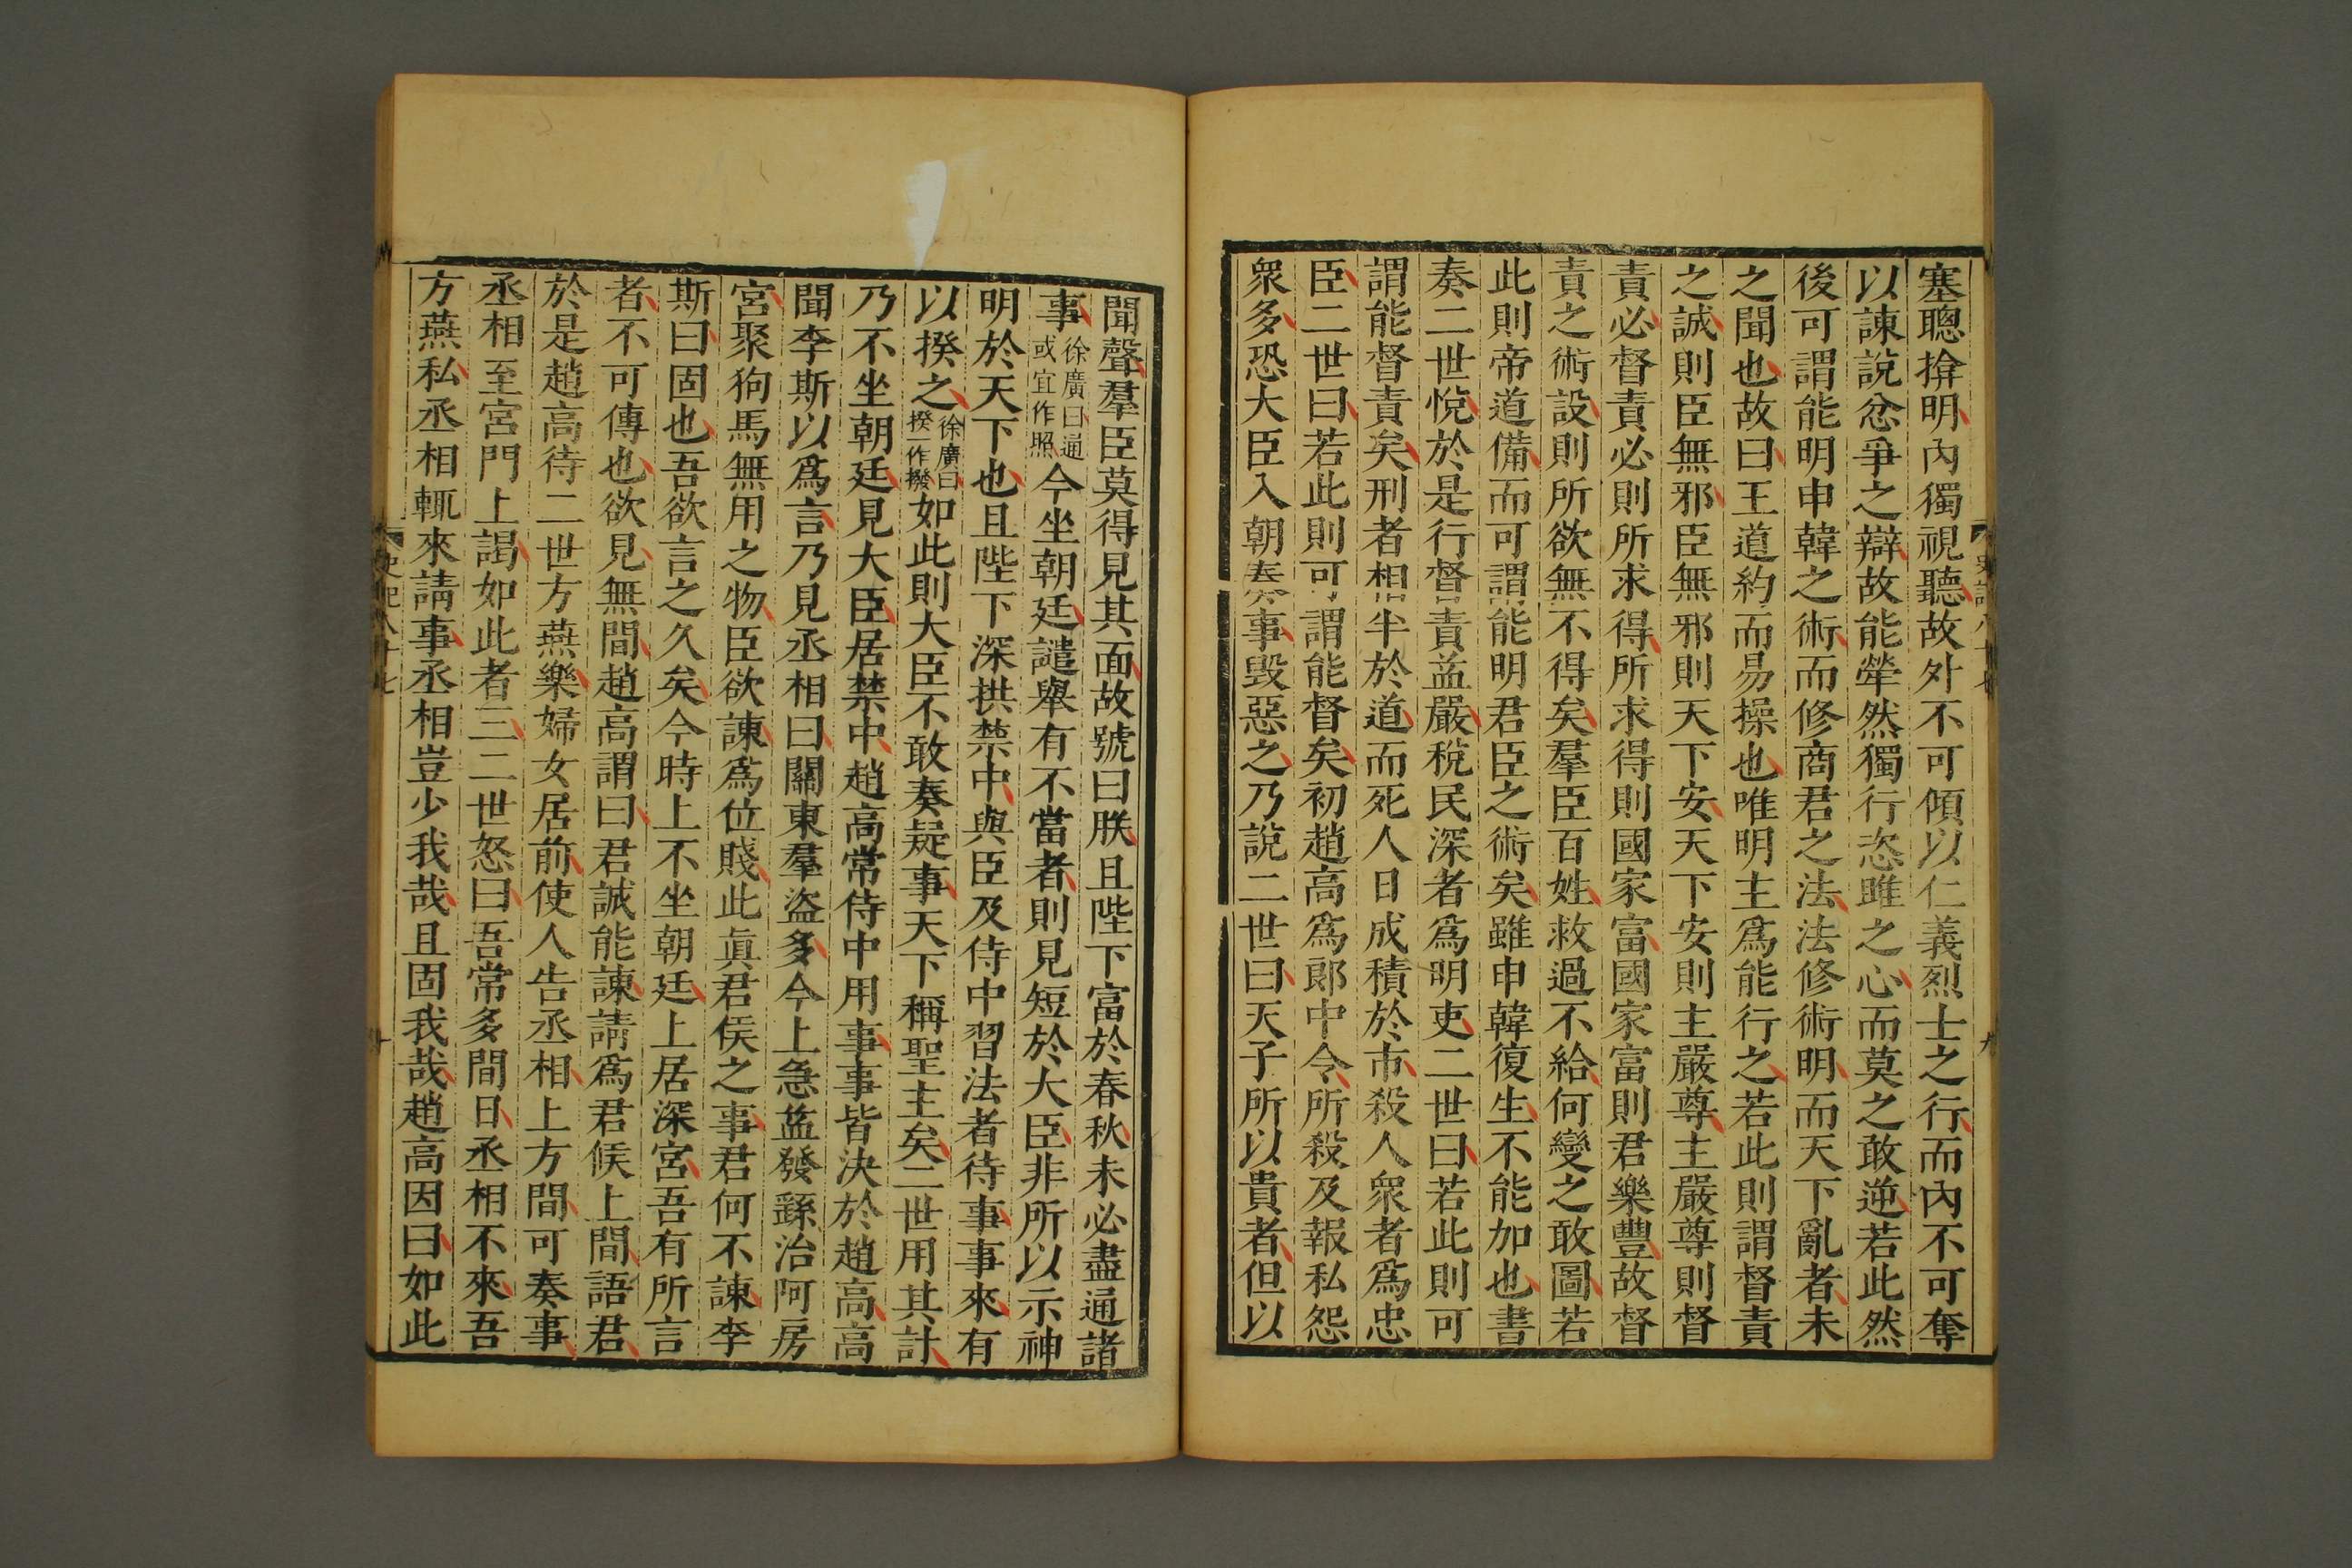 塞聰揜明內獨視聽故外不可傾以仁義烈士之行而內不可奪
以諫說忿爭之辯故能犖然獨行恣睢之心而莫之敢逆若此然
後可謂能明申韓之術而修商君之法法修術明而天下亂者未
之聞也故曰王道約而易操也唯明主爲能行之若此則謂督責
之誠則臣無邪臣無邪則天下安天下安則主嚴尊主嚴尊則督
責必督責必則所求得所求得則國家富國家富則君樂豐故督
責之術設則所欲無不得矣羣臣百姓救過不給何變之敢圖若
此則帝道備而可謂能明君臣之術矣雖申韓復生不能加也書
奏二世悅於是行督責益嚴稅民深者爲明吏二世曰若此則可
謂能督責矣刑者相半於道而死人日成積於市殺人衆者爲忠
臣二世曰若此則可謂能督矣初趙高爲郎中令所殺及報私怨
衆多恐大臣入朝奏事毀惡之乃說二世曰天子所以貴者但以
聞聲羣臣莫得見其面故號曰朕且陛下富於春秋未必盡通諸
事徐廣曰通或宜作照今坐朝廷譴舉有不當者則見短於大臣非所以示神
明於天下也且陛下深拱禁中與臣及侍中習法者待事事來有
以揆之徐廣曰揆一作撥如此則大臣不敢奏疑事天下稱聖主矣二世用其計
乃不坐朝廷見大臣居禁中趙高常侍中用事事皆決於趙高高
聞李斯以爲言乃見丞相曰關東羣盜多今上急益發繇治阿房
宮聚狗馬無用之物臣欲諫爲位賤此眞君侯之事君何不諫李
斯曰固也吾欲言之久矣今時上不坐朝廷上居深宮吾有所言
者不可傳也欲見無間趙高謂曰君誠能諫請爲君候上間語君
於是趙高待二世方燕樂婦女居前使人告丞相上方間可奏事
丞相至宮門上謁如此者三二世怒曰吾常多間日丞相不來吾
方燕私丞相輒來請事丞相豈少我哉且固我哉趙高因曰如此
史記八十七
十